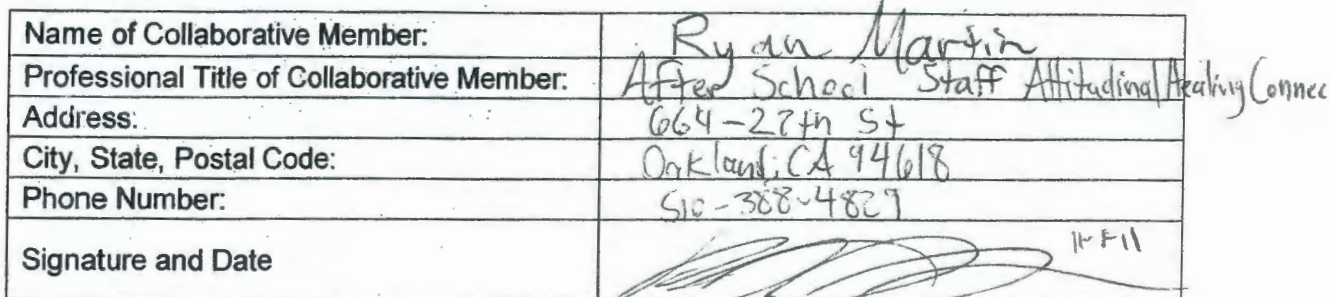 Name of Collaborative Member: Ryan Martin
Professional Title of Collaborative Member: After School Staff Attitudinal Healing Connec
Address: 664-27th St
City, State, Postal Code: Oakland, CA 94618
Phone Number: 510-388-4829
Signature and Date